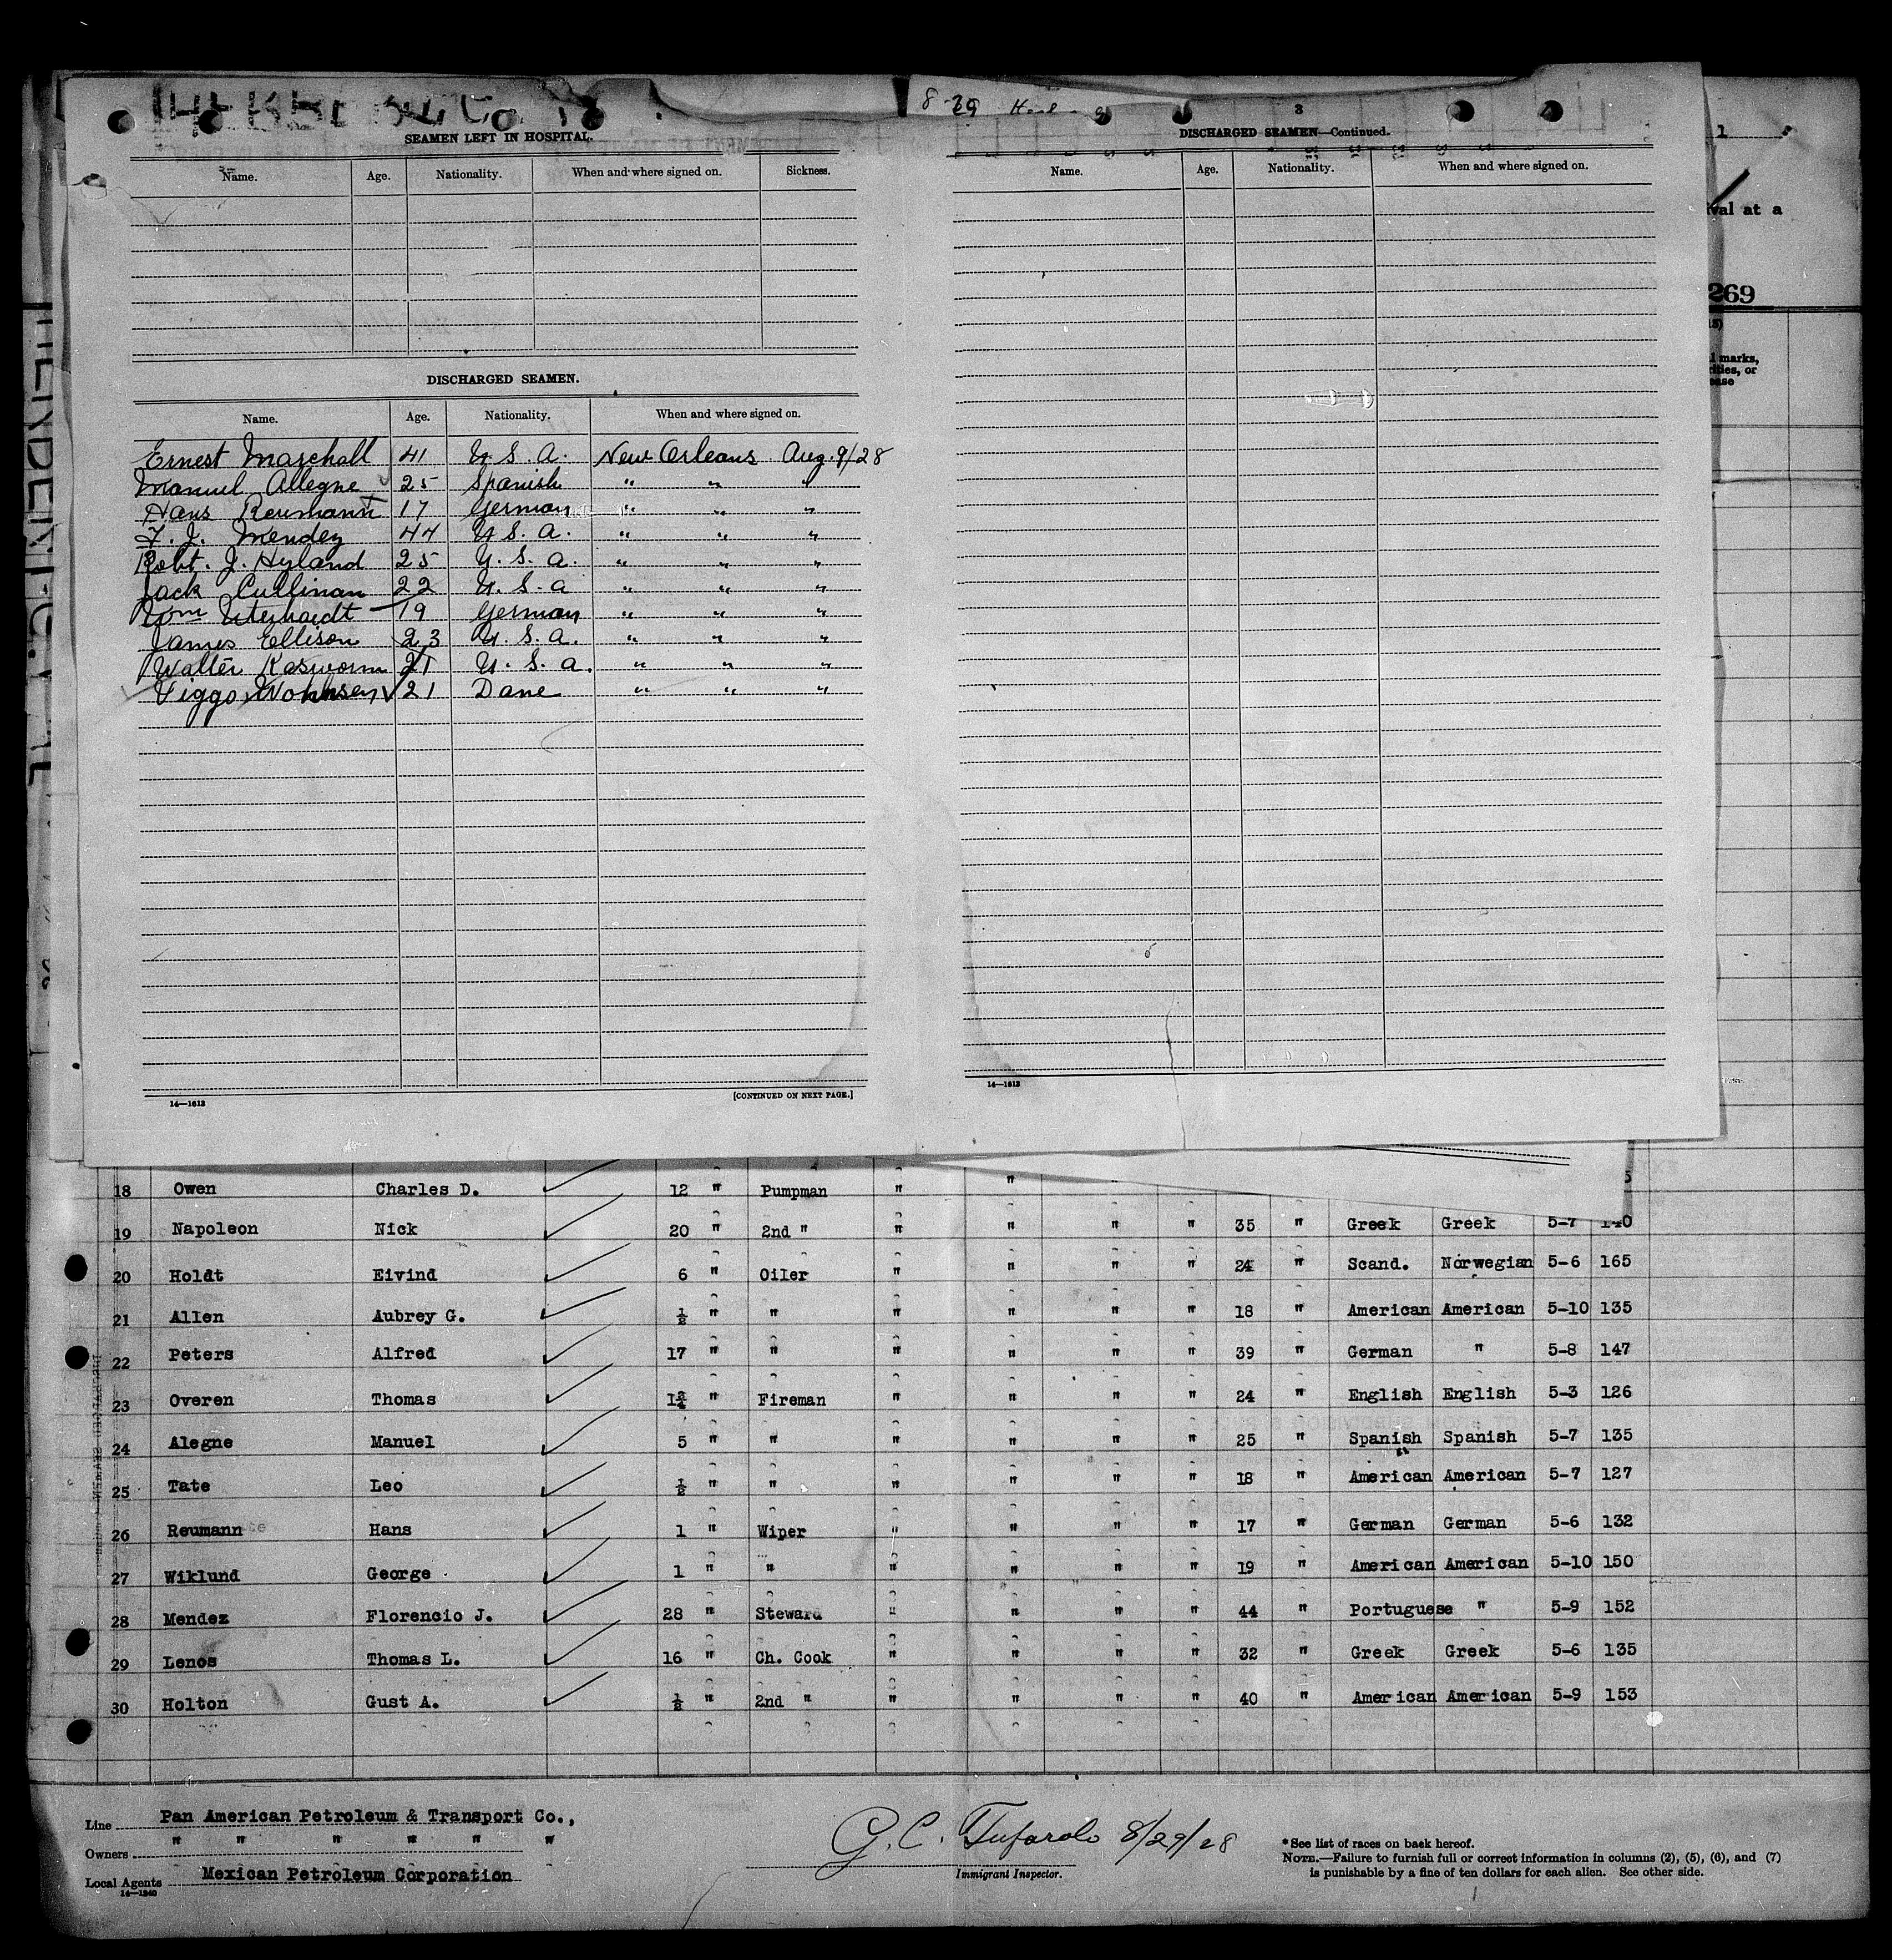 8-29
3
SEAMEN LEFT IN HOSPITAL.
Name. Age. Nationality. When and where signed on. Sickness.
DISCHARGED SEAMEN.
Name. Age. Nationality. When and where signed on.
Ernest Marchall 41 U.S.A. New Orleans Aug. 9/28
Manuel Allegne 25 Spanish " " "
Hans Reumann 17 German " " "
F. J. Mendez 44 U.S.A. " " "
Robt. J. Hyland 25 U.S.A. " " "
Jack Cullinan 22 U.S.A " " "
Wm Uterhardt 19 German " " "
James Ellison 23 U.S.A. " " "
Walter Kasworm 21 U.S.A. " " "
Viggo 21 Dane " " "
14—1613
[CONTINUED ON NEXT PAGE.]
DISCHARGED SEAMEN—Continued.
Name. Age. Nationality. When and where signed on.
14—1613
1
val at a
269
marks,
or
18 Owen Charles D. 12 " Pumpman " "
19 Napoleon Nick 20 " 2nd " " " " " 35 " Greek Greek 5-7 140
20 Holdt Eivind 6 " Oiler " " " " 24 " Scand. Norwegian 5-6 165
21 Allen Aubrey G. ½ " " " " " " 18 " American American 5-10 135
22 Peters Alfred 17 " " " " " " 39 " German " 5-8 147
23 Overen Thomas 1¾ " Fireman " " " " 24 " English English 5-3 126
24 Alegne Manuel 5 " " " " " " 25 " Spanish Spanish 5-7 135
25 Tate Leo ½ " " " " " " 18 " American American 5-7 127
26 Reumann Hans 1 " Wiper " " " " 17 " German German 5-6 132
27 Wiklund George 1 " " " " " " 19 " American American 5-10 150
28 Mendez Florencio J. 28 " Steward " " " " 44 " Portuguese " 5-9 152
29 Lenos Thomas L. 16 " Ch. Cook " " " " 32 " Greek Greek 5-6 135
30 Holton Gust A. ½ " 2nd " " " " " 40 " American American 5-9 153
Line Pan American Petroleum & Transport Co.,
Owners " " " " " "
Local Agents Mexican Petroleum Corporation
14—1240
G. C. Tufarolo 8/29/28
Immigrant Inspector.
*See list of races on back hereof.
NOTE.—Failure to furnish full or correct information in columns (2), (5), (6), and (7)
is punishable by a fine of ten dollars for each alien. See other side.